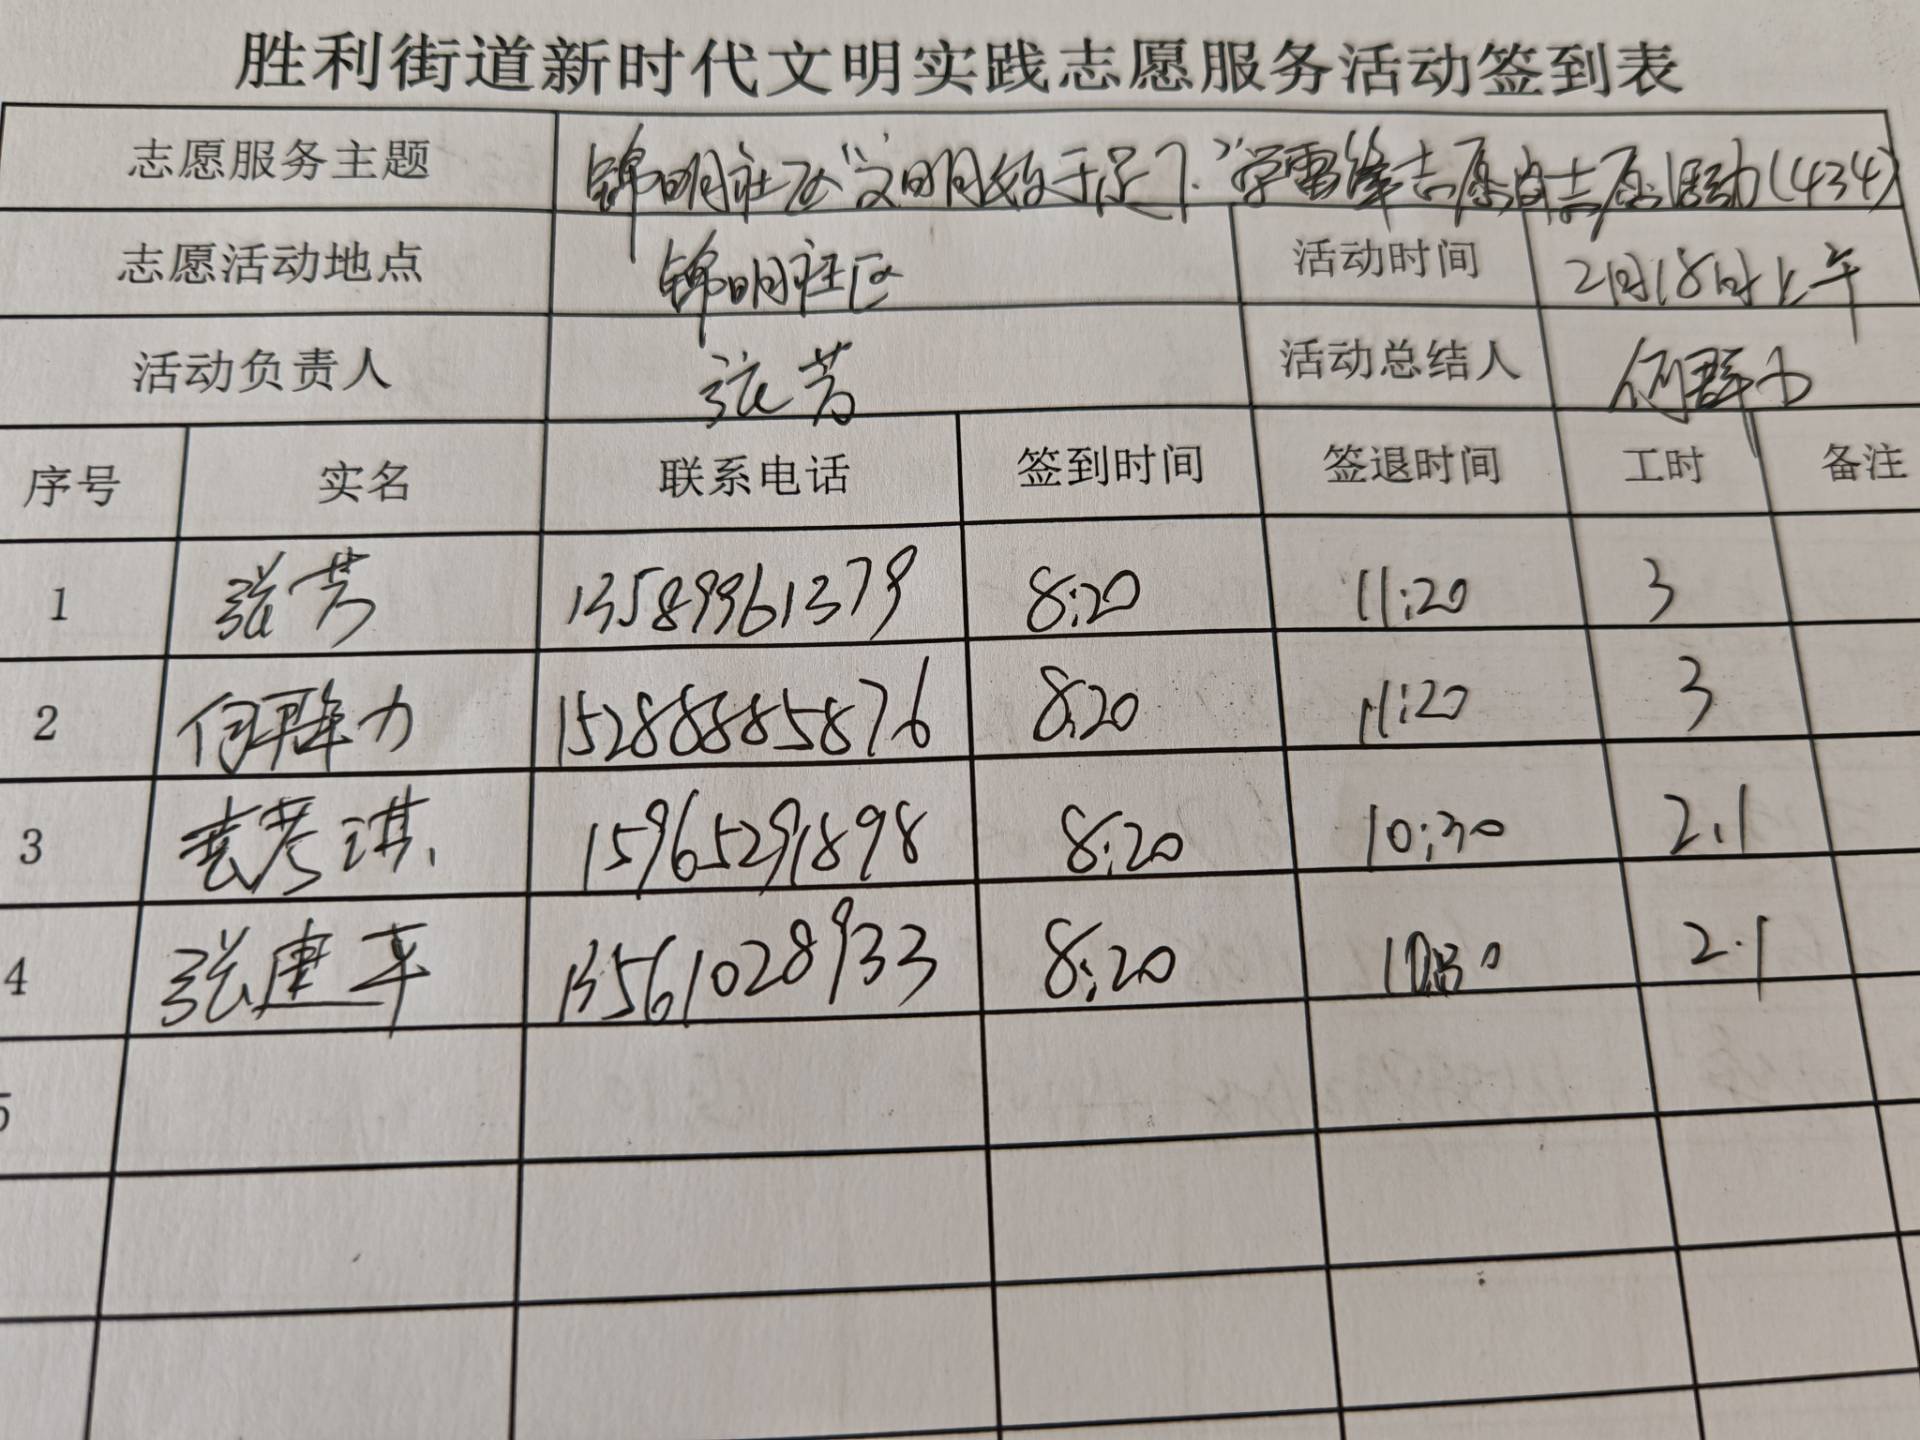 胜利街道新时代文明实践志愿服务活动签到表
志愿服务主题 锦明社区“文明始于足下”学雷锋志愿活动(434)
志愿活动地点 锦明社区 活动时间 2月18日上午
活动负责人 张芳 活动总结人 何群力
序号 实名 联系电话 签到时间 签退时间 工时 备注
1 张芳 13589961379 8:20 11:20 3
2 何群力 15288885876 8:20 11:20 3
3 15965291898 8:20 10:30 2.1
4 张建平 13561028933 8:20 10:30 2.1
5